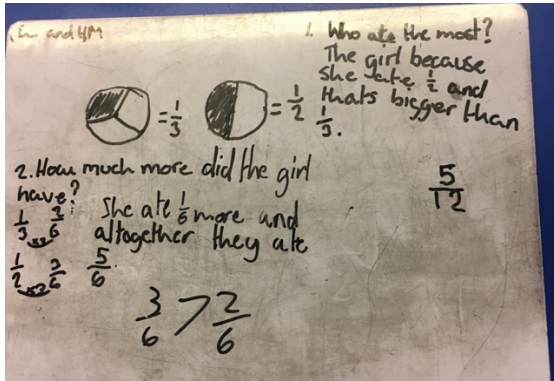 and HM
1. Who ate the most?
The girl because
she ate 1/2 and
thats bigger than
1/3.
= 1/3
= 1/2
2. How much more did the girl
have?
She ate 1/6 more and
altogether they ate
5/6.
1/3 2/6
x2
1/2 3/6
x3
3/6 > 2/6
5/12